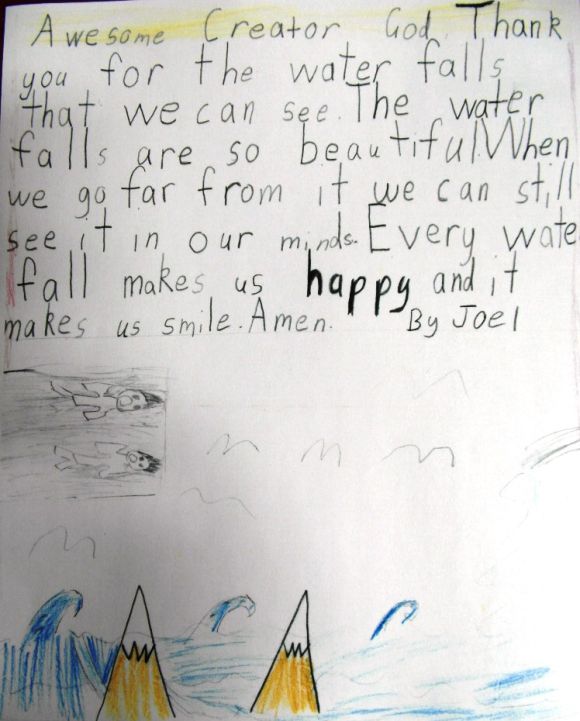 Awesome Creator God. Thank
you for the water falls
that we can see. The water
falls are so beautiful. When
we go far from it we can still
see it in our minds. Every wate
fall makes us happy and it
makes us smile. Amen. By Joel